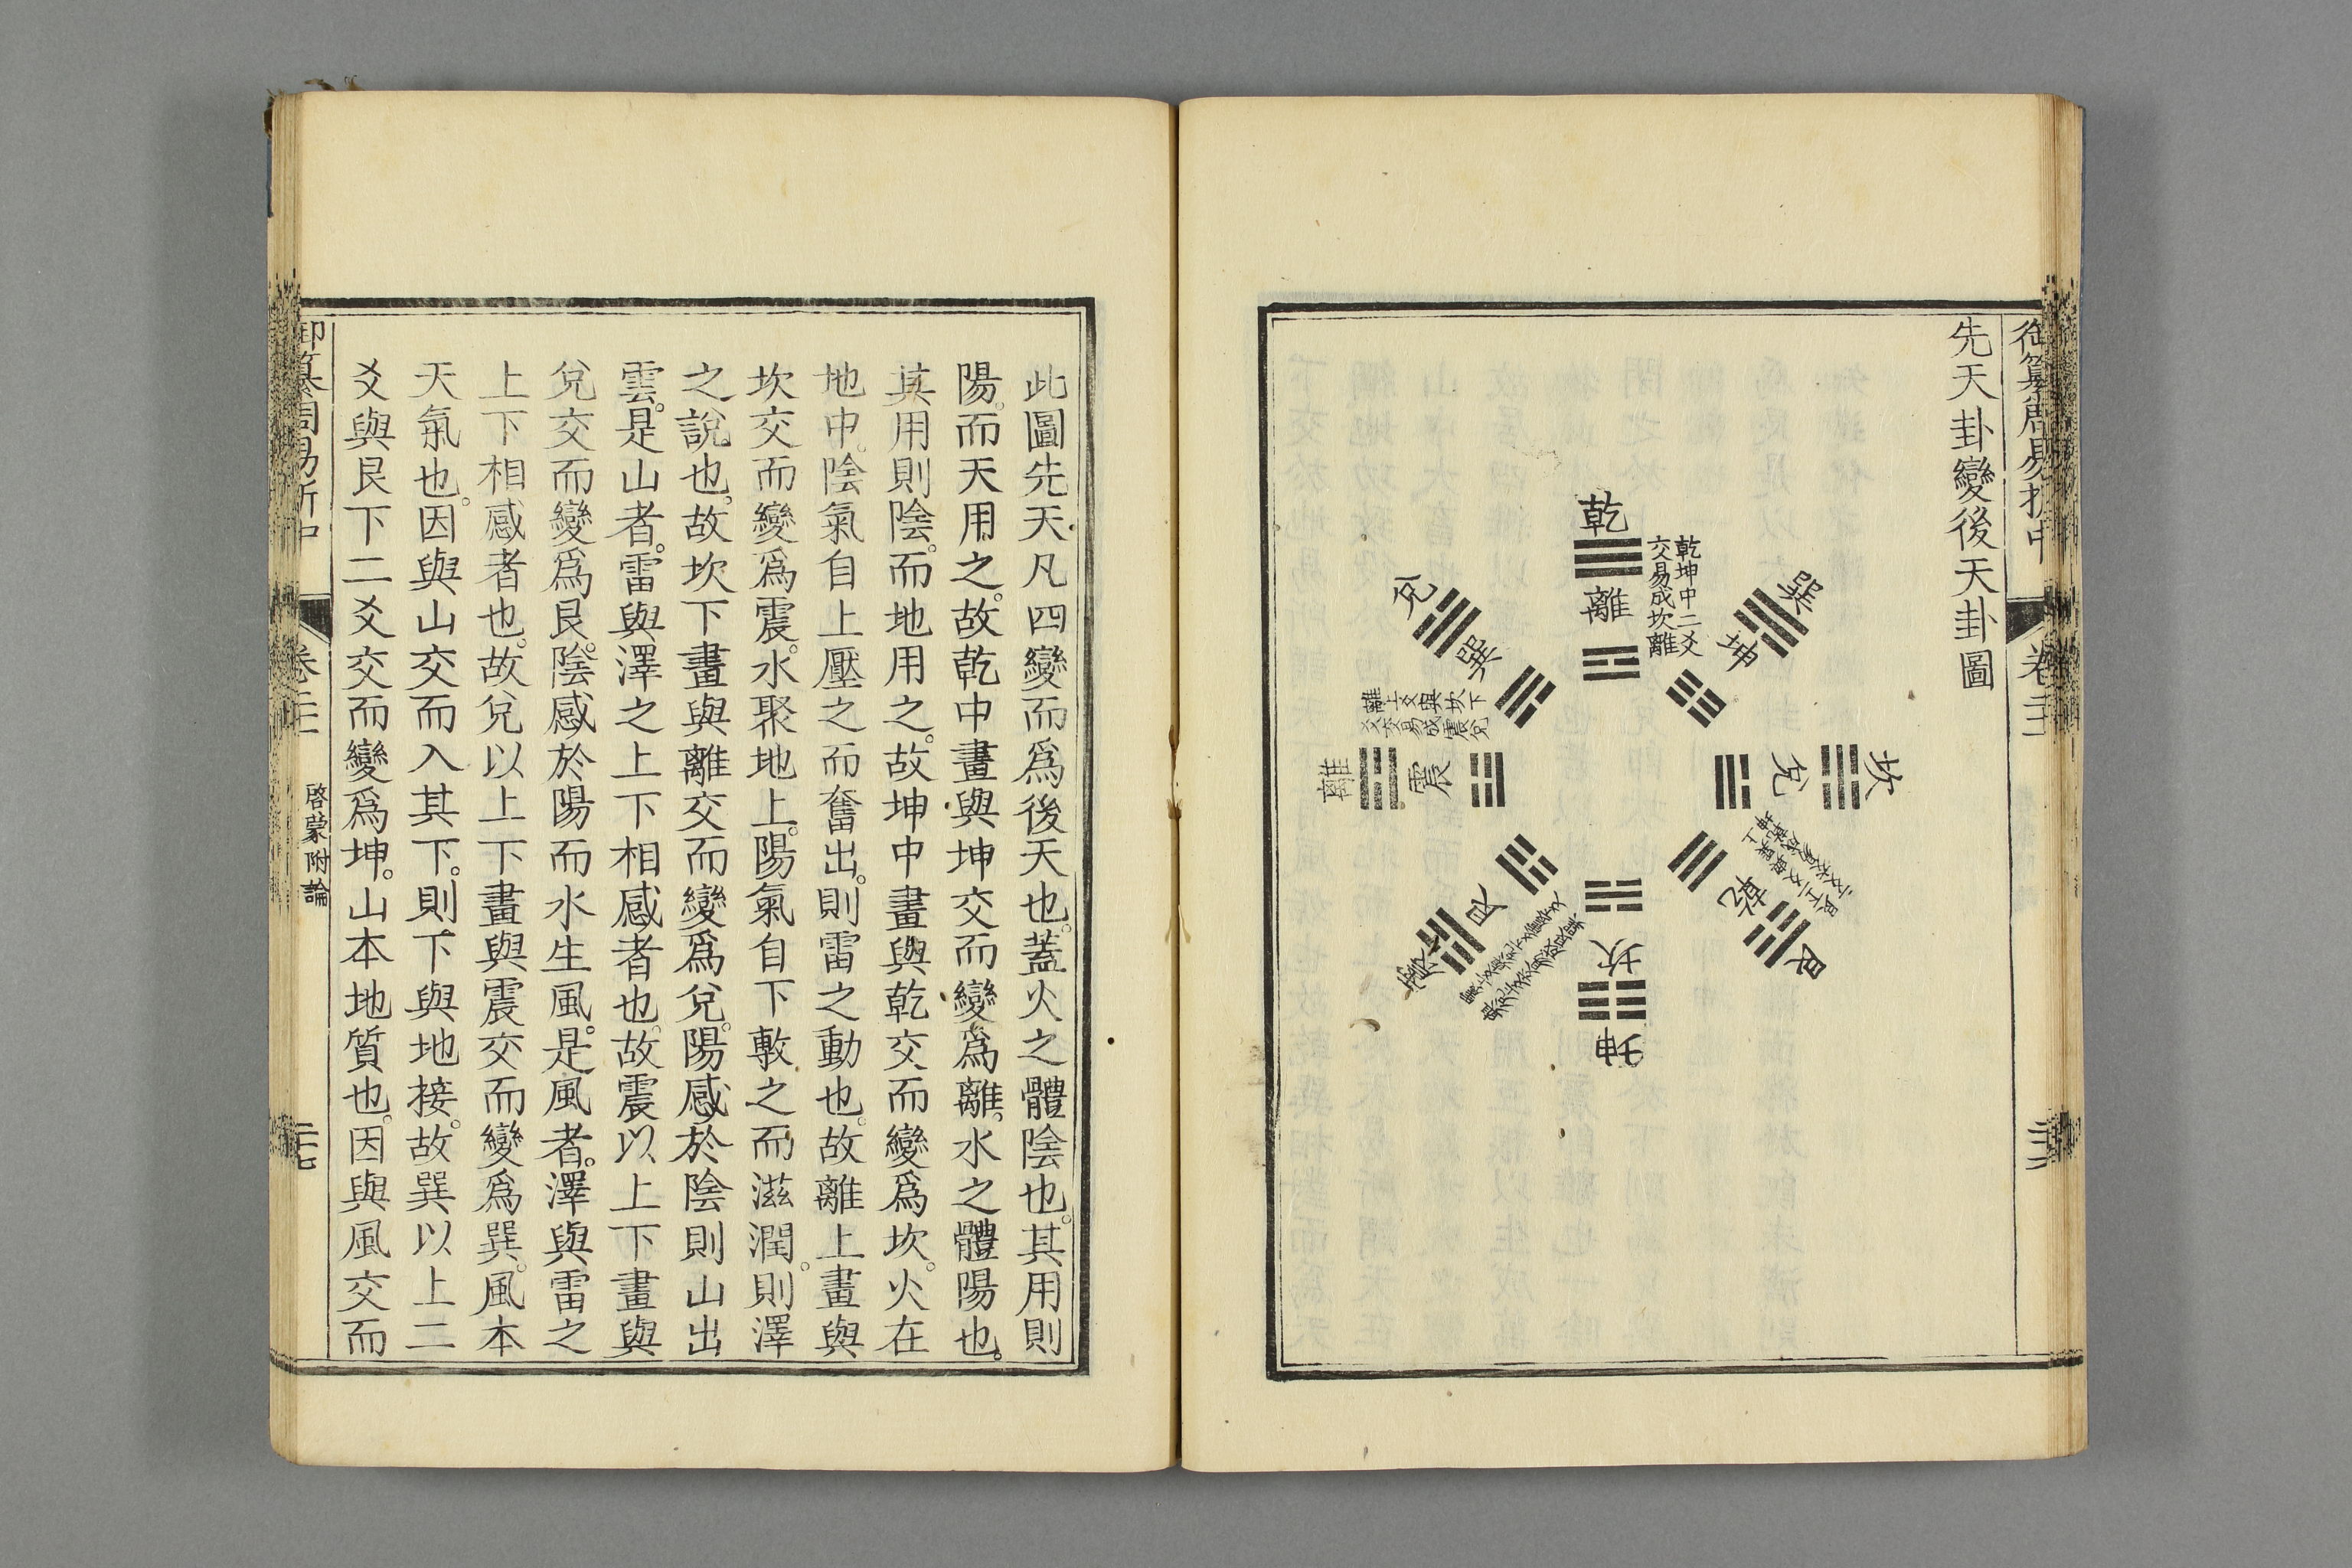 御纂周易折中
卷二十一
先天卦變後天卦圖
乾
離
乾坤中二爻
交易成坎離
巽
坤
坎
兌
艮
乾
坤
坎
震
艮
離
震
離上爻與坎下
爻交易成震兌
兌
巽
此圖先天凡四變而爲後天也。蓋火之體陰也。其用則
陽。而天用之。故乾中畫與坤交而變爲離。水之體陽也。
其用則陰。而地用之。故坤中畫與乾交而變爲坎。火在
地中。陰氣自上壓之而奮出。則雷之動也。故離上畫與
坎交而變爲震。水聚地上。陽氣自下敷之而滋潤。則澤
之說也。故坎下畫與離交而變爲兌。陽感於陰則山出
雲。是山者。雷與澤之上下相感者也。故震以上下畫與
兌交而變爲艮。陰感於陽而水生風。是風者。澤與雷之
上下相感者也。故兌以上下畫與震交而變爲巽。風本
天氣也。因與山交而入其下。則下與地接。故巽以上二
爻與艮下二爻交而變爲坤。山本地質也。因與風交而
御纂周易折中
卷二十一
啓蒙附論
二十七